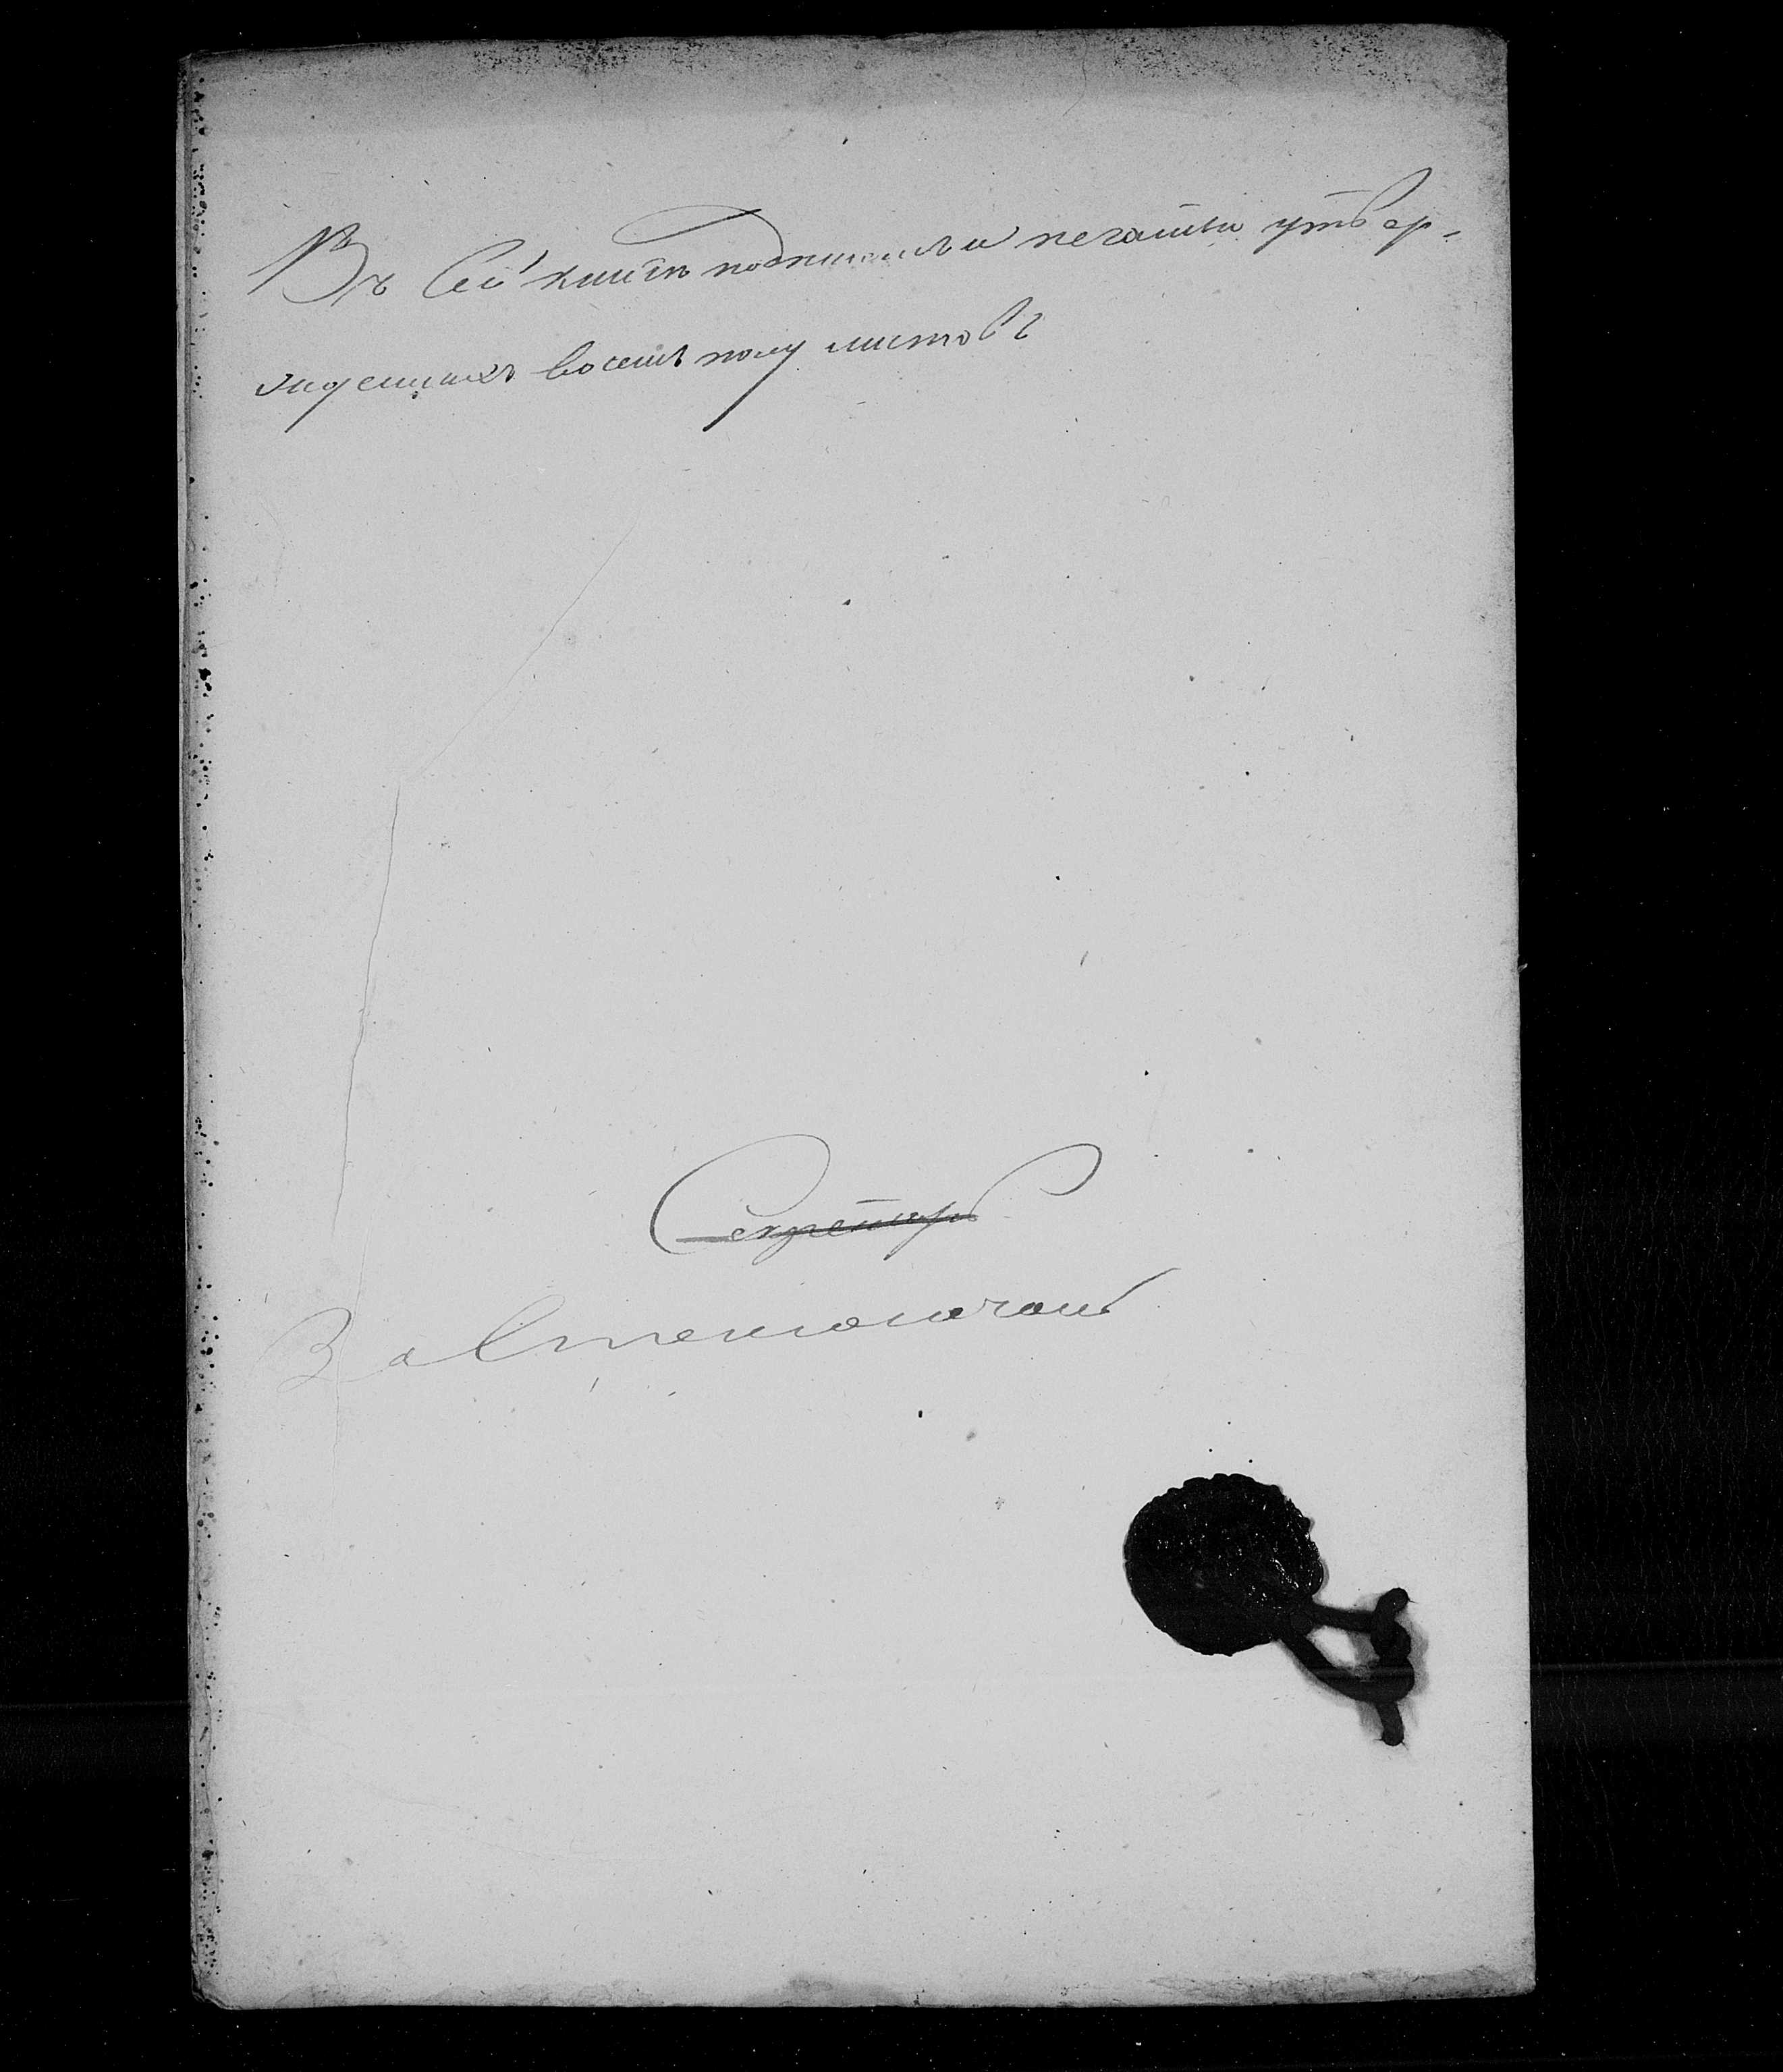 Въ сей книгѣ подписомъ и печатью утвер-
жденныхъ восемь полу листовъ
Секретарь
За Столоначальн